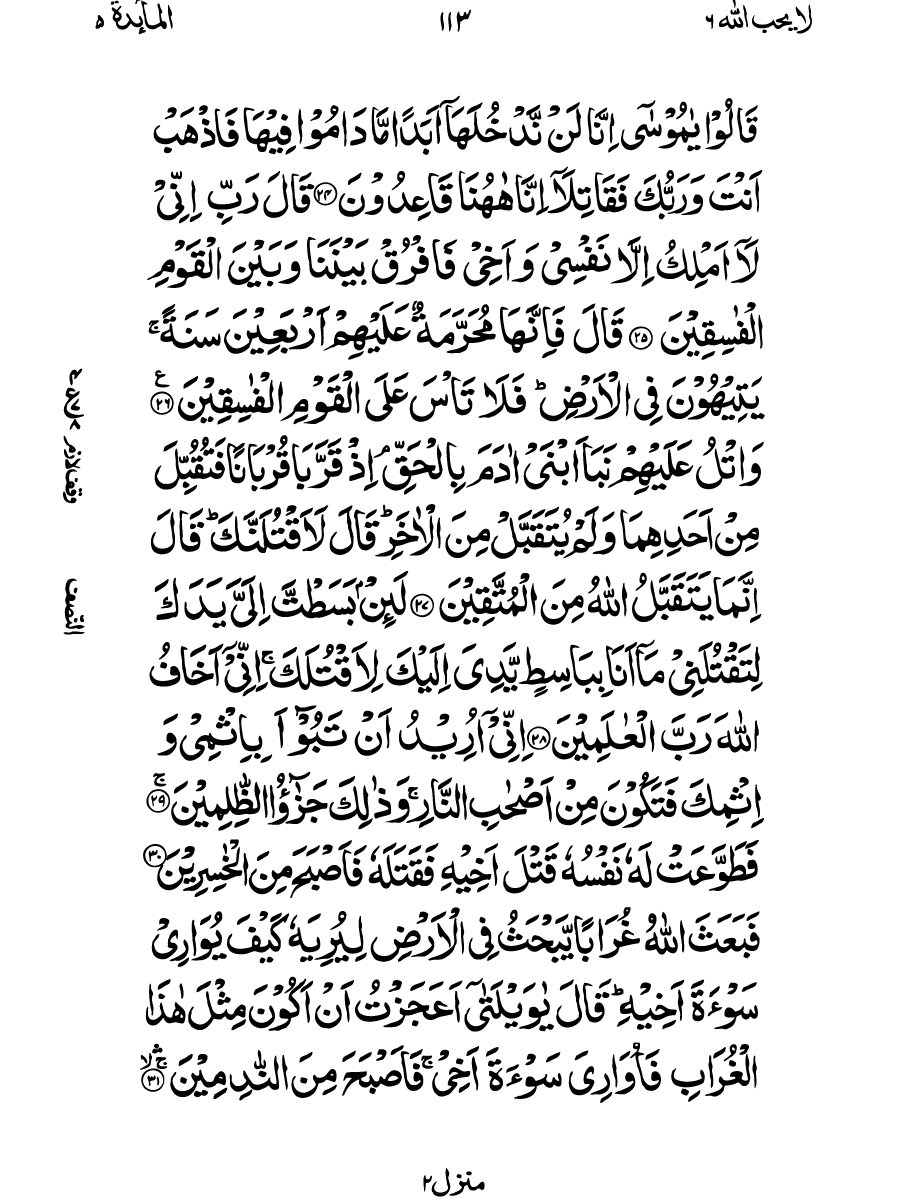 لا یحب الله ۶
۱۱۳
المآئدة ۵
قَالُوْا يٰمُوْسٰۤى اِنَّا لَنْ نَّدْخُلَهَاۤ اَبَدًا مَّا دَامُوْا فِيْهَا فَاذْهَبْ
اَنْتَ وَرَبُّكَ فَقَاتِلَاۤ اِنَّا هٰهُنَا قَاعِدُوْنَ ۝۲۴ قَالَ رَبِّ اِنِّىْ
لَاۤ اَمْلِكُ اِلَّا نَفْسِىْ وَ اَخِىْ فَافْرُقْ بَيْنَنَا وَ بَيْنَ الْقَوْمِ
الْفٰسِقِيْنَ ۝۲۵ قَالَ فَاِنَّهَا مُحَرَّمَةٌ عَلَيْهِمْ اَرْبَعِيْنَ سَنَةً ۚ
يَتِيْهُوْنَ فِى الْاَرْضِ ؕ فَلَا تَاْسَ عَلَى الْقَوْمِ الْفٰسِقِيْنَ ۝۲۶ ع
وَاتْلُ عَلَيْهِمْ نَبَاَ ابْنَىْ اٰدَمَ بِالْحَقِّ ۘ اِذْ قَرَّبَا قُرْبَانًا فَتُقُبِّلَ
مِنْ اَحَدِهِمَا وَلَمْ يُتَقَبَّلْ مِنَ الْاٰخَرِ ؕ قَالَ لَاَقْتُلَنَّكَ ؕ قَالَ
اِنَّمَا يَتَقَبَّلُ اللّٰهُ مِنَ الْمُتَّقِيْنَ ۝۲۷ لَئِنْۢ بَسَطْتَّ اِلَىَّ يَدَكَ
لِتَقْتُلَنِىْ مَاۤ اَنَا بِبَاسِطٍ يَّدِىَ اِلَيْكَ لِاَقْتُلَكَ ۚ اِنِّىْۤ اَخَافُ
اللّٰهَ رَبَّ الْعٰلَمِيْنَ ۝۲۸ اِنِّىْۤ اُرِيْدُ اَنْ تَبُوْٓاَ بِاِثْمِىْ وَ
اِثْمِكَ فَتَكُوْنَ مِنْ اَصْحٰبِ النَّارِ ۚ وَ ذٰلِكَ جَزٰٓؤُا الظّٰلِمِيْنَ ۚ ۝۲۹
فَطَوَّعَتْ لَهٗ نَفْسُهٗ قَتْلَ اَخِيْهِ فَقَتَلَهٗ فَاَصْبَحَ مِنَ الْخٰسِرِيْنَ ۝۳۰
فَبَعَثَ اللّٰهُ غُرَابًا يَّبْحَثُ فِى الْاَرْضِ لِيُرِيَهٗ كَيْفَ يُوَارِىْ
سَوْءَةَ اَخِيْهِ ؕ قَالَ يٰوَيْلَتٰۤى اَعَجَزْتُ اَنْ اَكُوْنَ مِثْلَ هٰذَا
الْغُرَابِ فَاُوَارِىَ سَوْءَةَ اَخِىْ ۚ فَاَصْبَحَ مِنَ النّٰدِمِيْنَ ۝۳۱
النّصف
منزل ۲